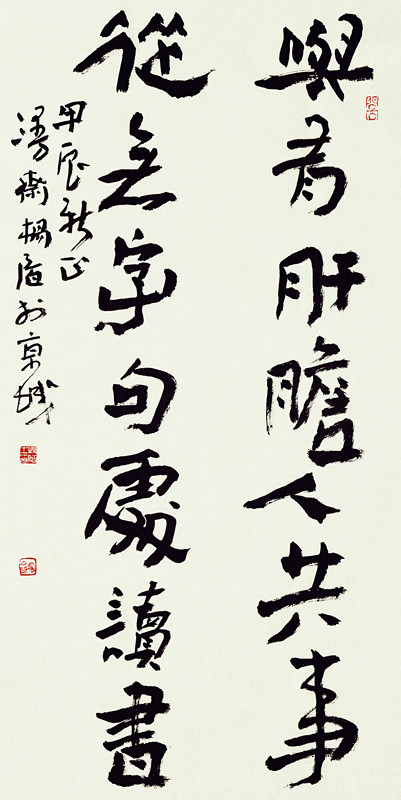 與有肝膽人共事
從無字句處讀書
甲辰秋正
於京城